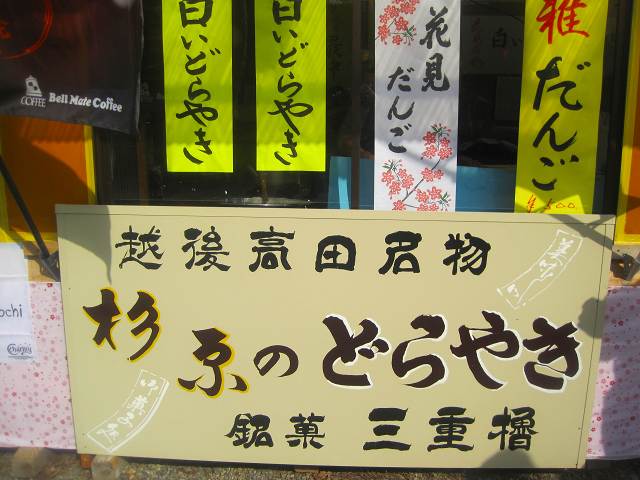 COFFEE Bell Mate Coffee
白いどらやき
白いどらやき
花見だんご
雅だんご
越後高田名物
杉原のどらやき
銘菓 三重櫓
ochi